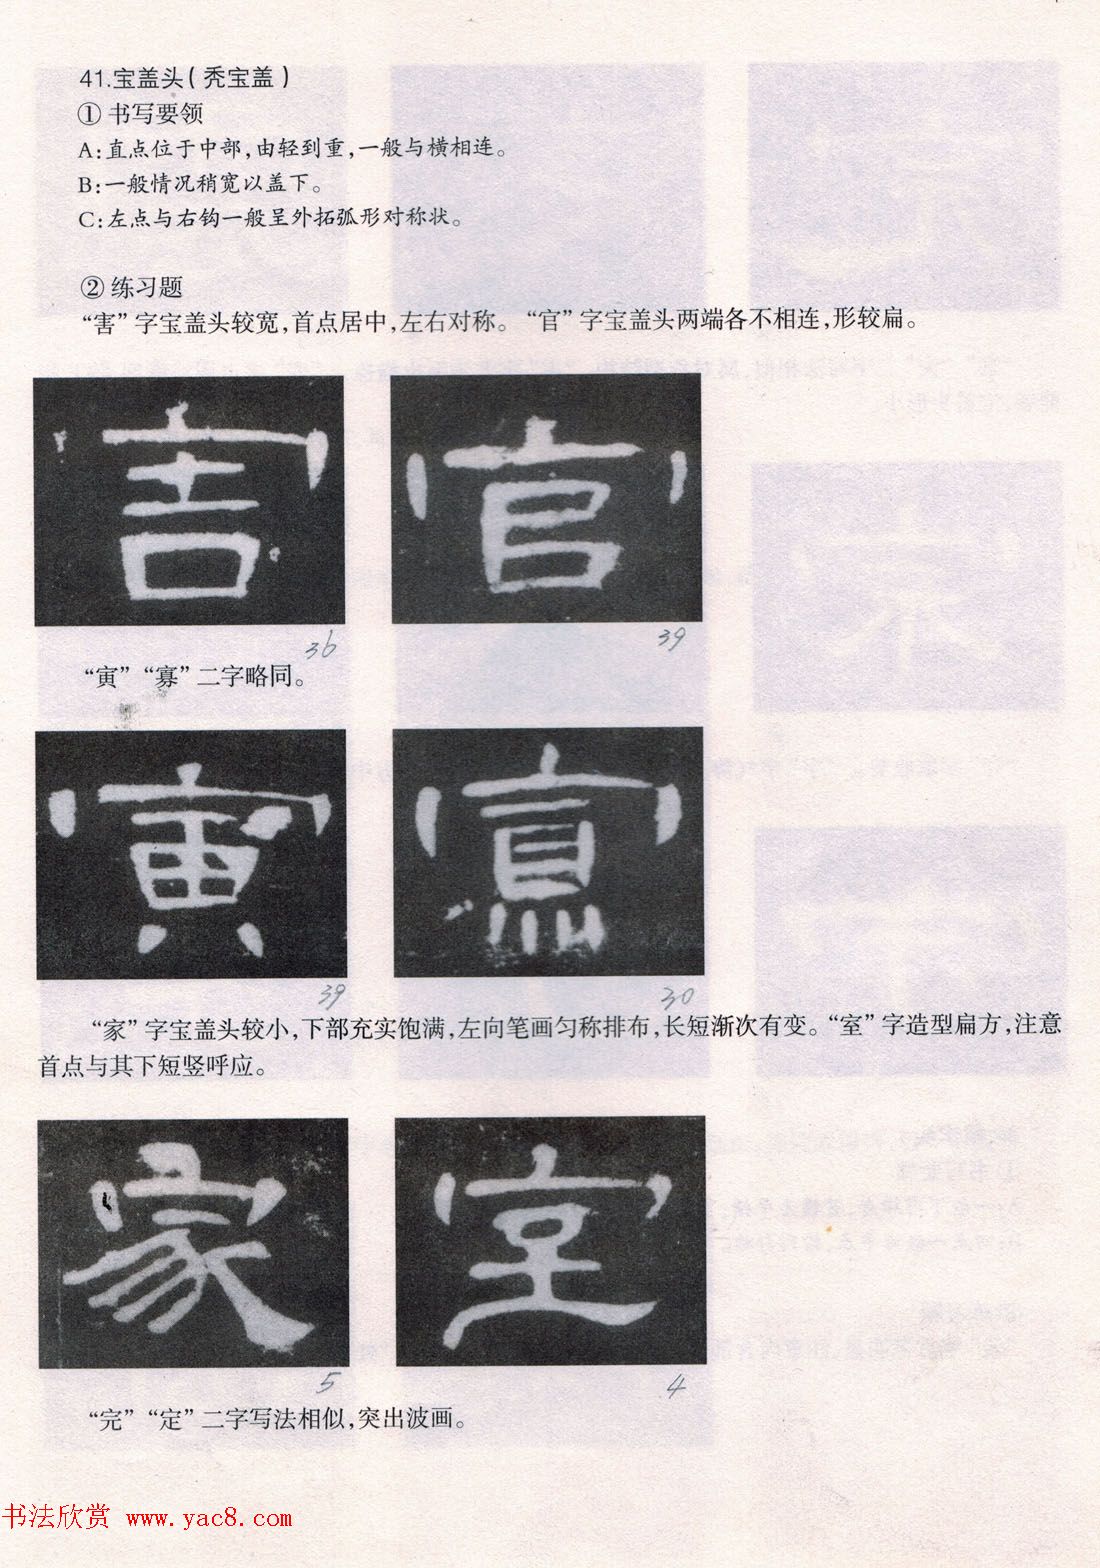 41.宝盖头(秃宝盖)
① 书写要领
A:直点位于中部,由轻到重,一般与横相连。
B:一般情况稍宽以盖下。
C:左点与右钩一般呈外拓弧形对称状。
② 练习题
“害”字宝盖头较宽,首点居中,左右对称。“官”字宝盖头两端各不相连,形较扁。
害 官
36 39
“寅”“寡”二字略同。
寅 寡
39 30
“家”字宝盖头较小,下部充实饱满,左向笔画匀称排布,长短渐次有变。“室”字造型扁方,注意
首点与其下短竖呼应。
家 室
5 4
“完”“定”二字写法相似,突出波画。
书法欣赏 www.yac8.com